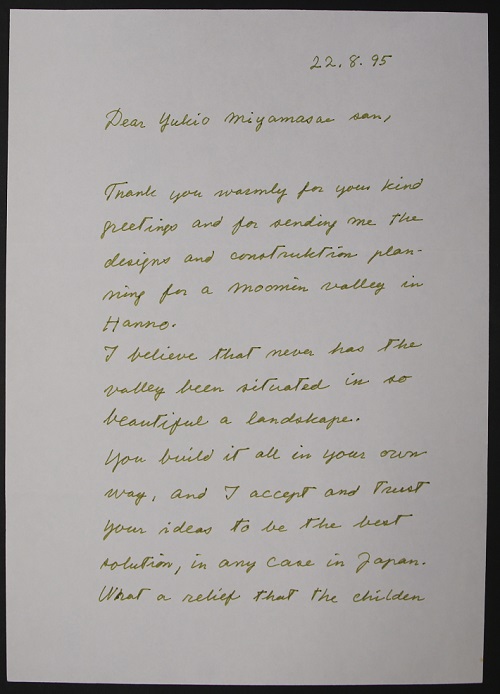 22.8.95
Dear Yukio Miyamasae san,
Thank you warmly for your kind
greetings and for sending me the
designs and construktion plan-
ning for a Moomin valley in
Hanno.
I believe that never has the
valley been situated in so
beautiful a landskape.
You build it all in your own
way, and I accept and trust
your ideas to be the best
solution, in any case in Japan.
What a relief that the childen